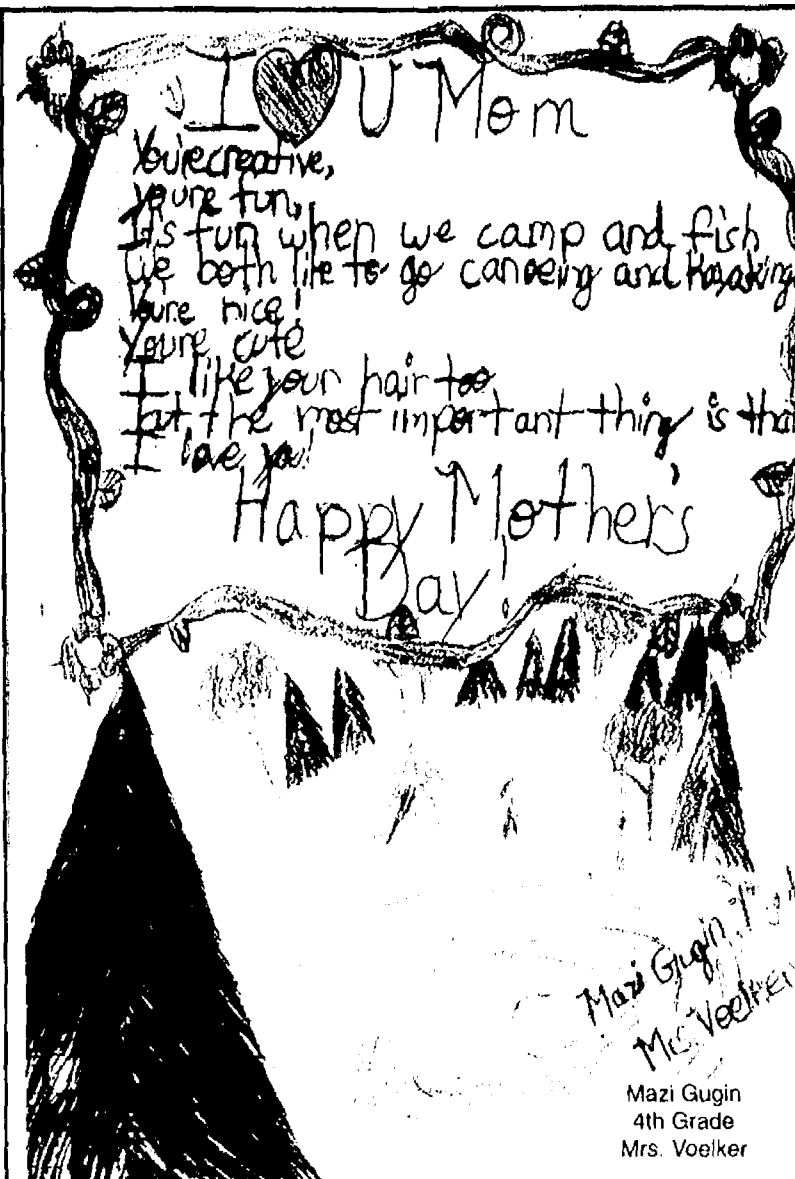 I ♥ U Mom
You're creative,
you're fun,
It's fun when we camp and fish
We both like to go canoeing and Kayaking
You're nice!
You're cute
I like your hair too
but the most important thing is that
I love you!
Happy Mother's
Day!
Mazi Gugin
Mrs. Voelker
Mazi Gugin
4th Grade
Mrs. Voelker